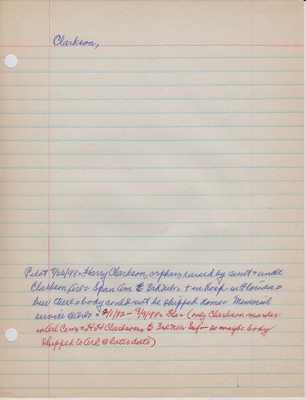 Clarkson,
Pilot 9/22/98 = Harry Clarkson, orphan, raised by aunt & uncle
Clarkson, Arl = Span Am 3rd Nebr + in Hosp in Florida
bur there body could not be shipped home = Memorial
service @ Arl = 
(only Clarkson marker
in Arl Cem = H H Clarkson 3rd Nebr Inf - so maybe body
shipped to Arl @ later date)